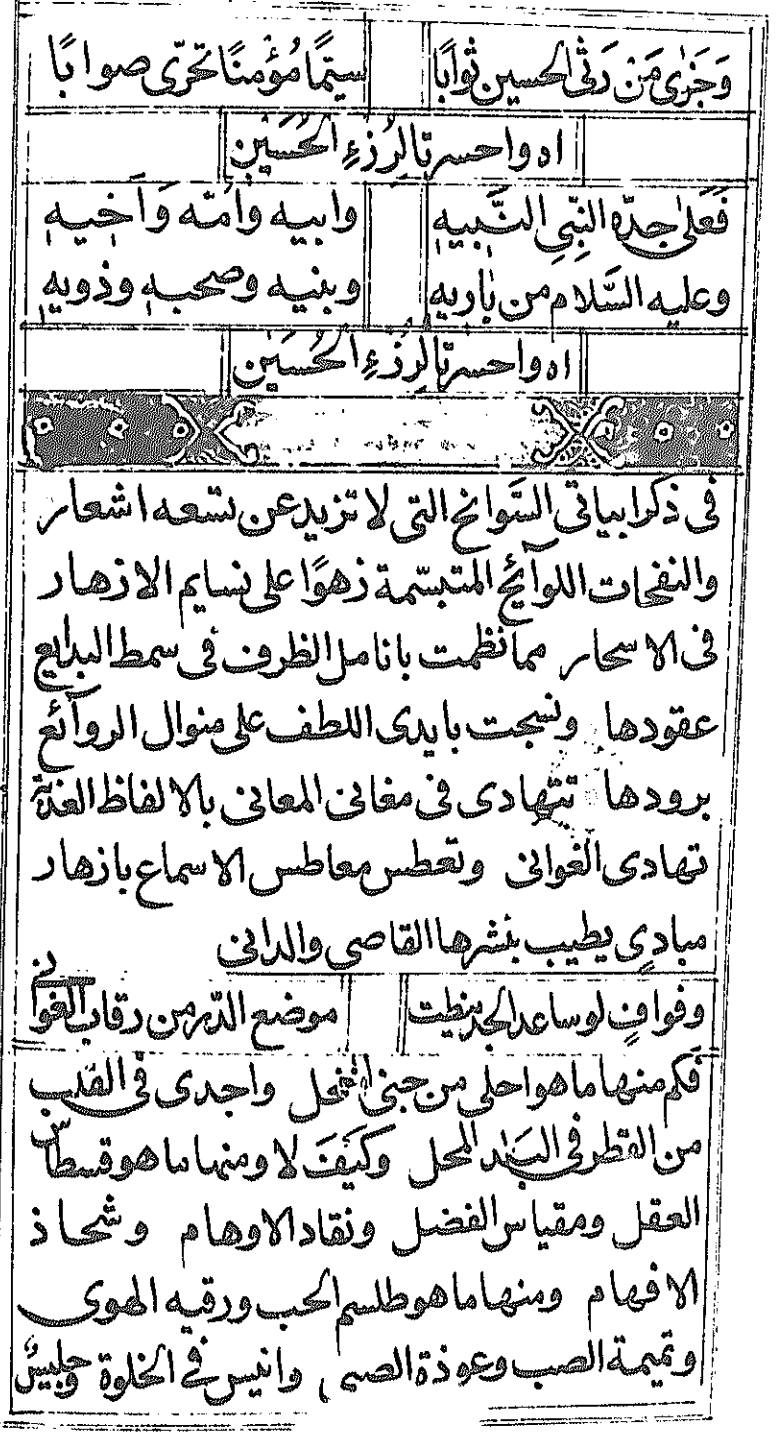 وَجَزٰى مَنْ رَثٰى الحسين ثوابًا سيّمًا مُؤْمنًا تحرّى صوابًا
اه واحسرتا لِرُزْءِ الحُسَيْنِ
فَعَلىٰ جدّه النبِّىِ النَّبيهِ وابيه وامّه وَاَخيهِ
وعليه السَّلام من بٰاريه وبنيه وصحبه وذويهِ
اه واحسرتا لِرُزْءِ الحُسَيْن
فى ذكر ابياتى السَّوانح التى لا تزيد عن تسعه اشعار
والنفحات اللوآئح المتبسّمة زهوًا على نسايم الازهار
فى الاسحار مما نظمت بانامل الظرف فى سمط البدايع
عقودها ونسجت بايدى اللطف على منوال الروآئع
برودها تتهادى فى مغانى المعانى بالالفاظ العذبة
تهادى الغوانى وتعطس معاطس الاسماع بازهار
مبادىٍ يطيب بنشرها القاصى والدانى
وقوافٍ لو ساعد الجد نيطت موضع الدّر من رقاب الغوانى
فكم منها ما هو احلى من جنى النحل واجدى فى القلب
من القطر فى البلد المحل وكَيْفَ لا ومنها ما هو قسطاس
العقل ومقياس الفضل ونقاد الاوهام وشحاذ
الافهام ومنها ما هو طلسم الحب ورقيه الهوى
وتميمة الصب وعوذة وانيس فى الخلوة وجليس